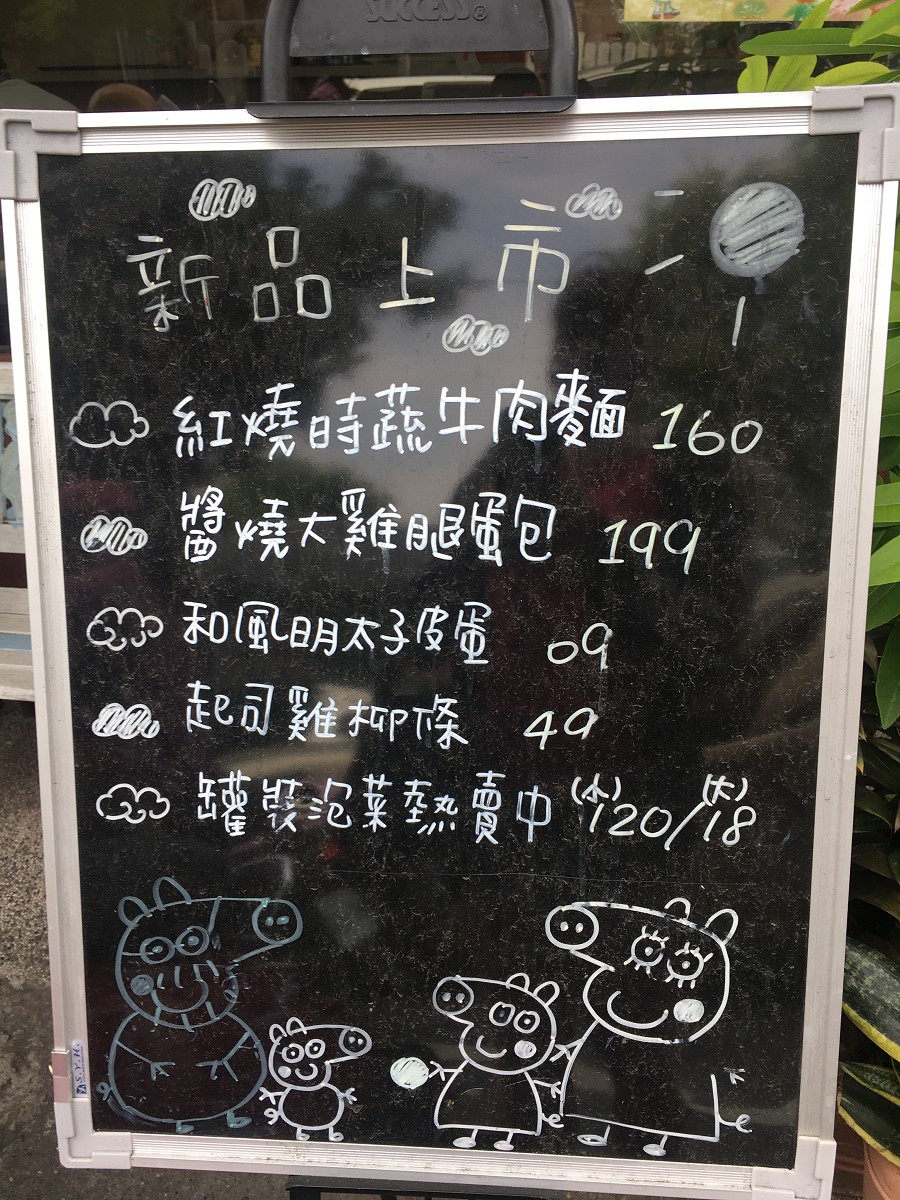 SUCCESS®
新品上市
紅燒時蔬牛肉麵 160
醬燒大雞腿蛋包 199
和風明太子皮蛋 69
起司雞柳條 49
罐裝泡菜熱賣中 (小)120/(大)18
S.Y.H.